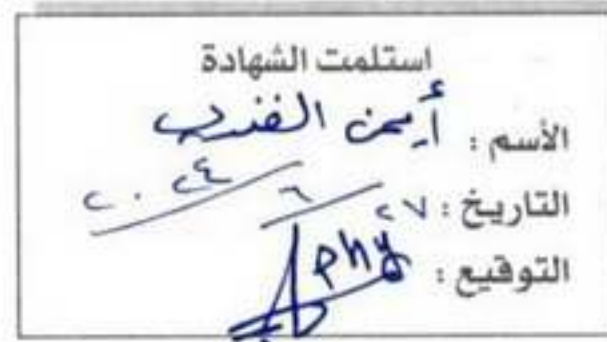 استلمت الشهادة
الأسم : أيمن
التاريخ : ٢٧ / ٦ / ٢٠٢٤
التوقيع :